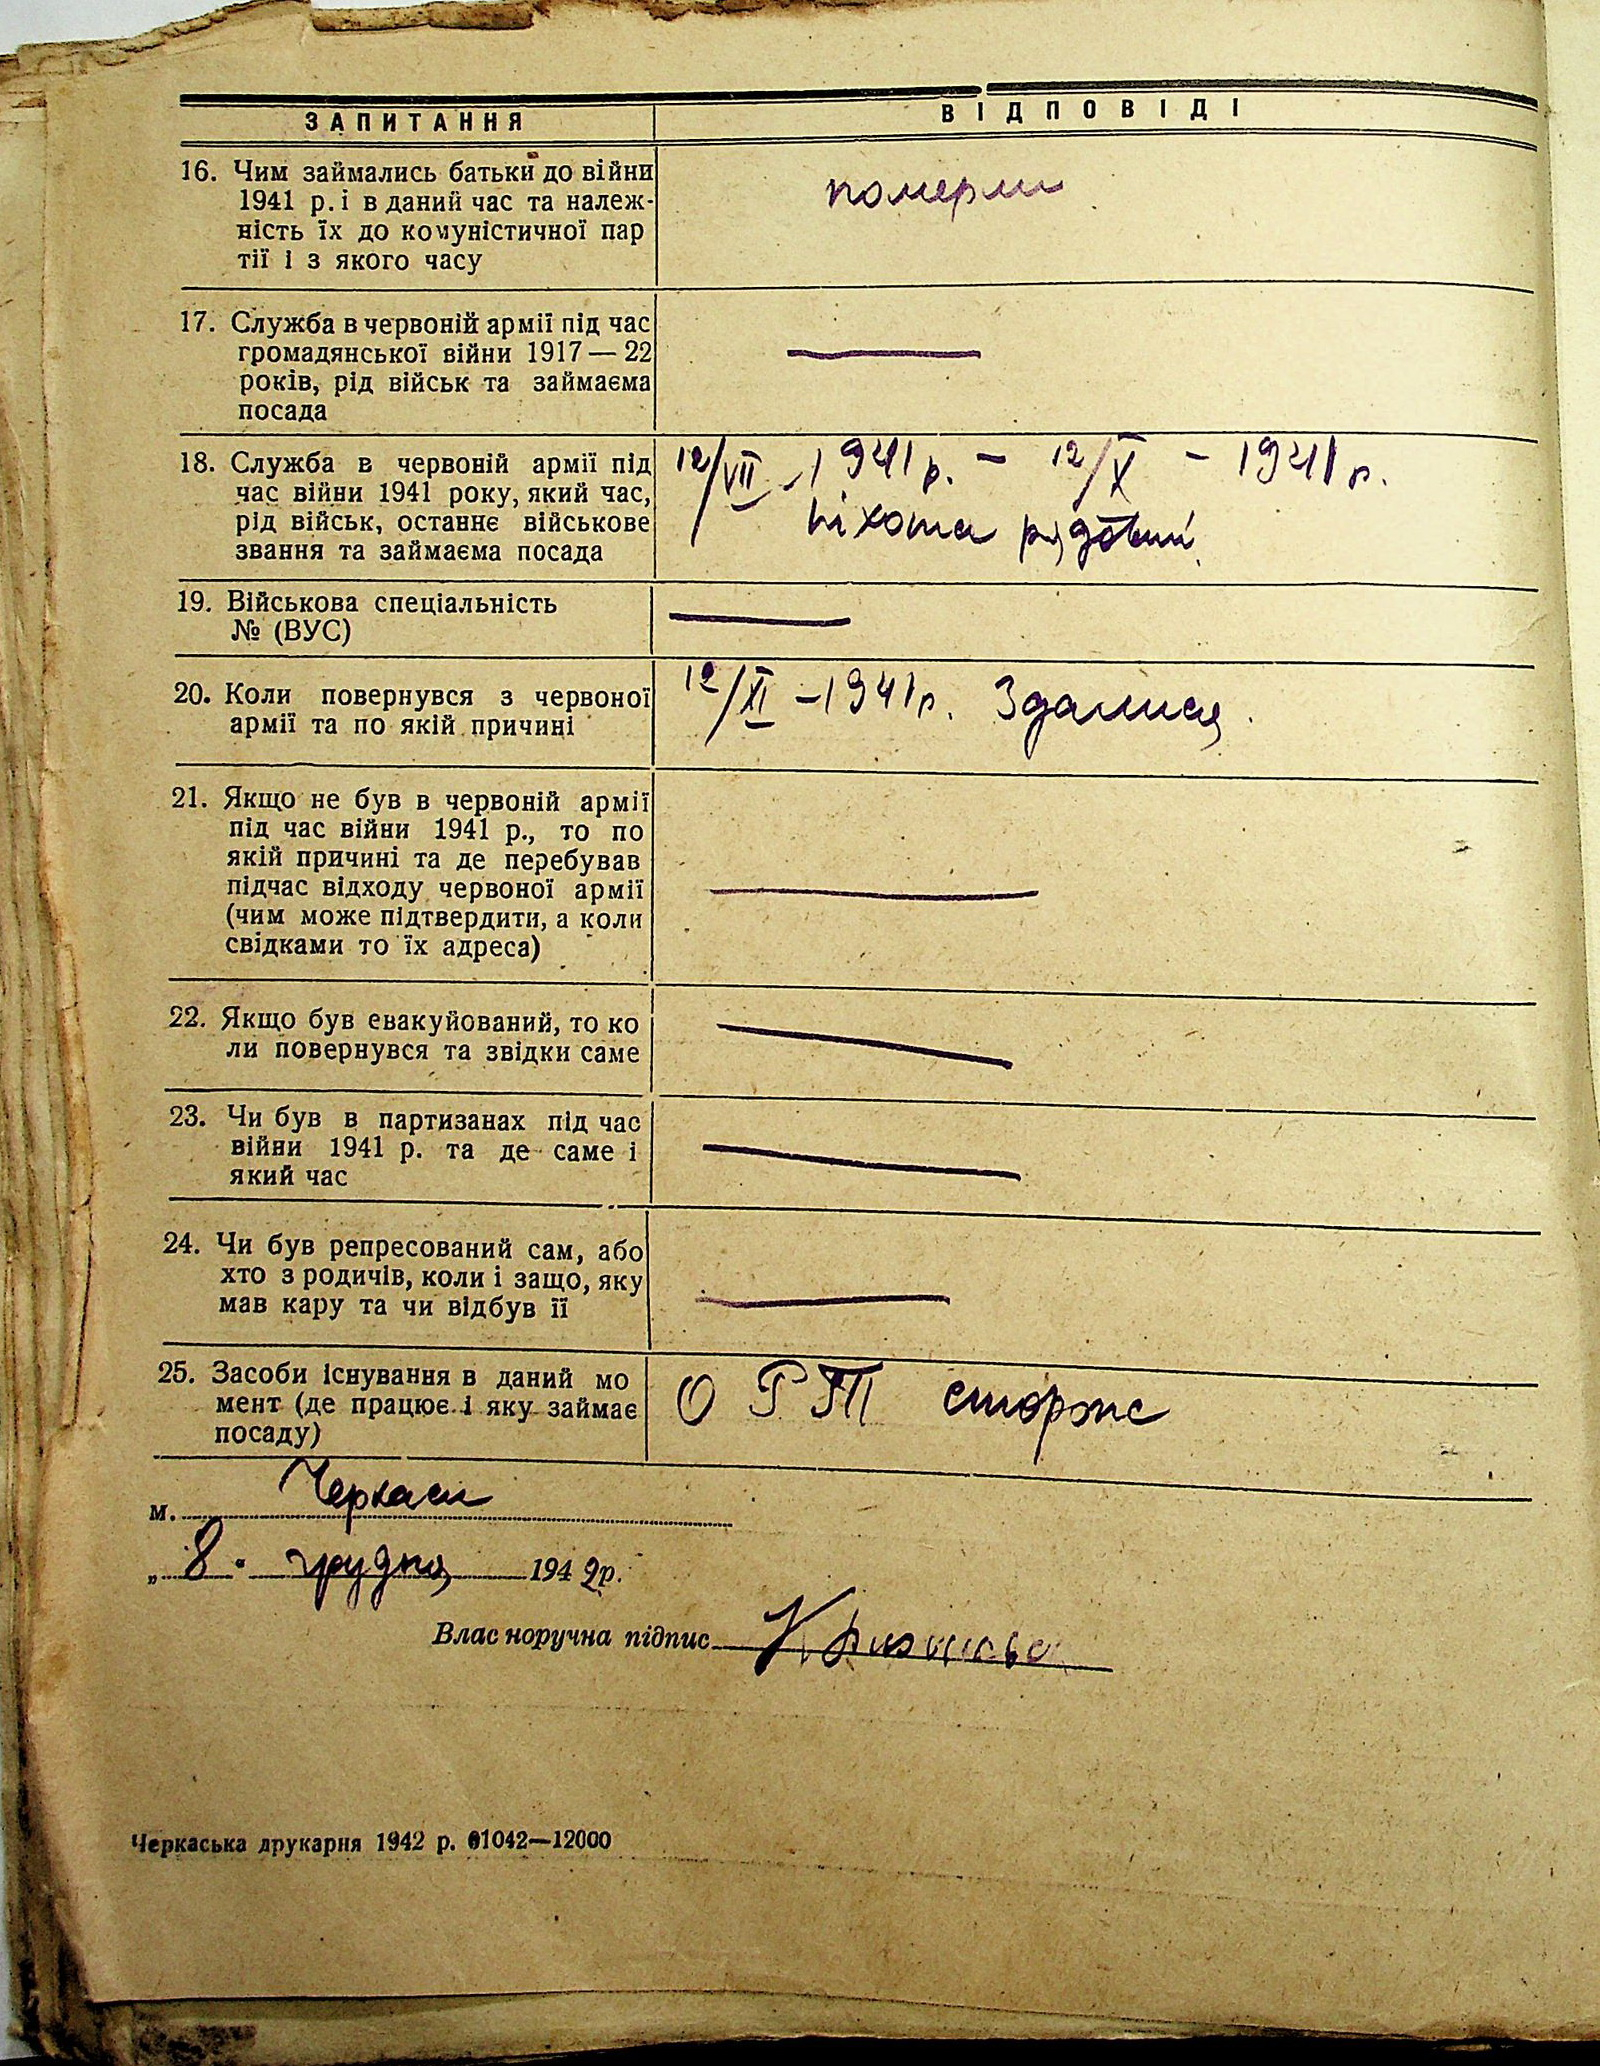 ЗАПИТАННЯ ВІДПОВІДІ
16. Чим займались батьки до війни
1941 р. і в даний час та належ-
ність їх до комуністичної пар
тії і з якого часу
померли
17. Служба в червоній армії під час
громадянської війни 1917 — 22
років, рід військ та займаєма
посада
18. Служба в червоній армії під
час війни 1941 року, який час,
рід військ, останнє військове
звання та займаєма посада
12/VII - 1941 р. - 12/X - 1941 р.
піхота рядовий
19. Військова спеціальність
№ (ВУС)
20. Коли повернувся з червоної
армії та по якій причині
12/XI - 1941 р. Здалися.
21. Якщо не був в червоній армії
під час війни 1941 р., то по
якій причині та де перебував
підчас відходу червоної армії
(чим може підтвердити, а коли
свідками то їх адреса)
22. Якщо був евакуйований, то ко
ли повернувся та звідки саме
23. Чи був в партизанах під час
війни 1941 р. та де саме і
який час
24. Чи був репресований сам, або
хто з родичів, коли і защо, яку
мав кару та чи відбув її
25. Засоби існування в даний мо
мент (де працює і яку займає
посаду)
О Р П сторож
м. Черкаси
„ 8. грудня 1942 р.
Влас норучна підпис
Черкаська друкарня 1942 р. 01042—12000